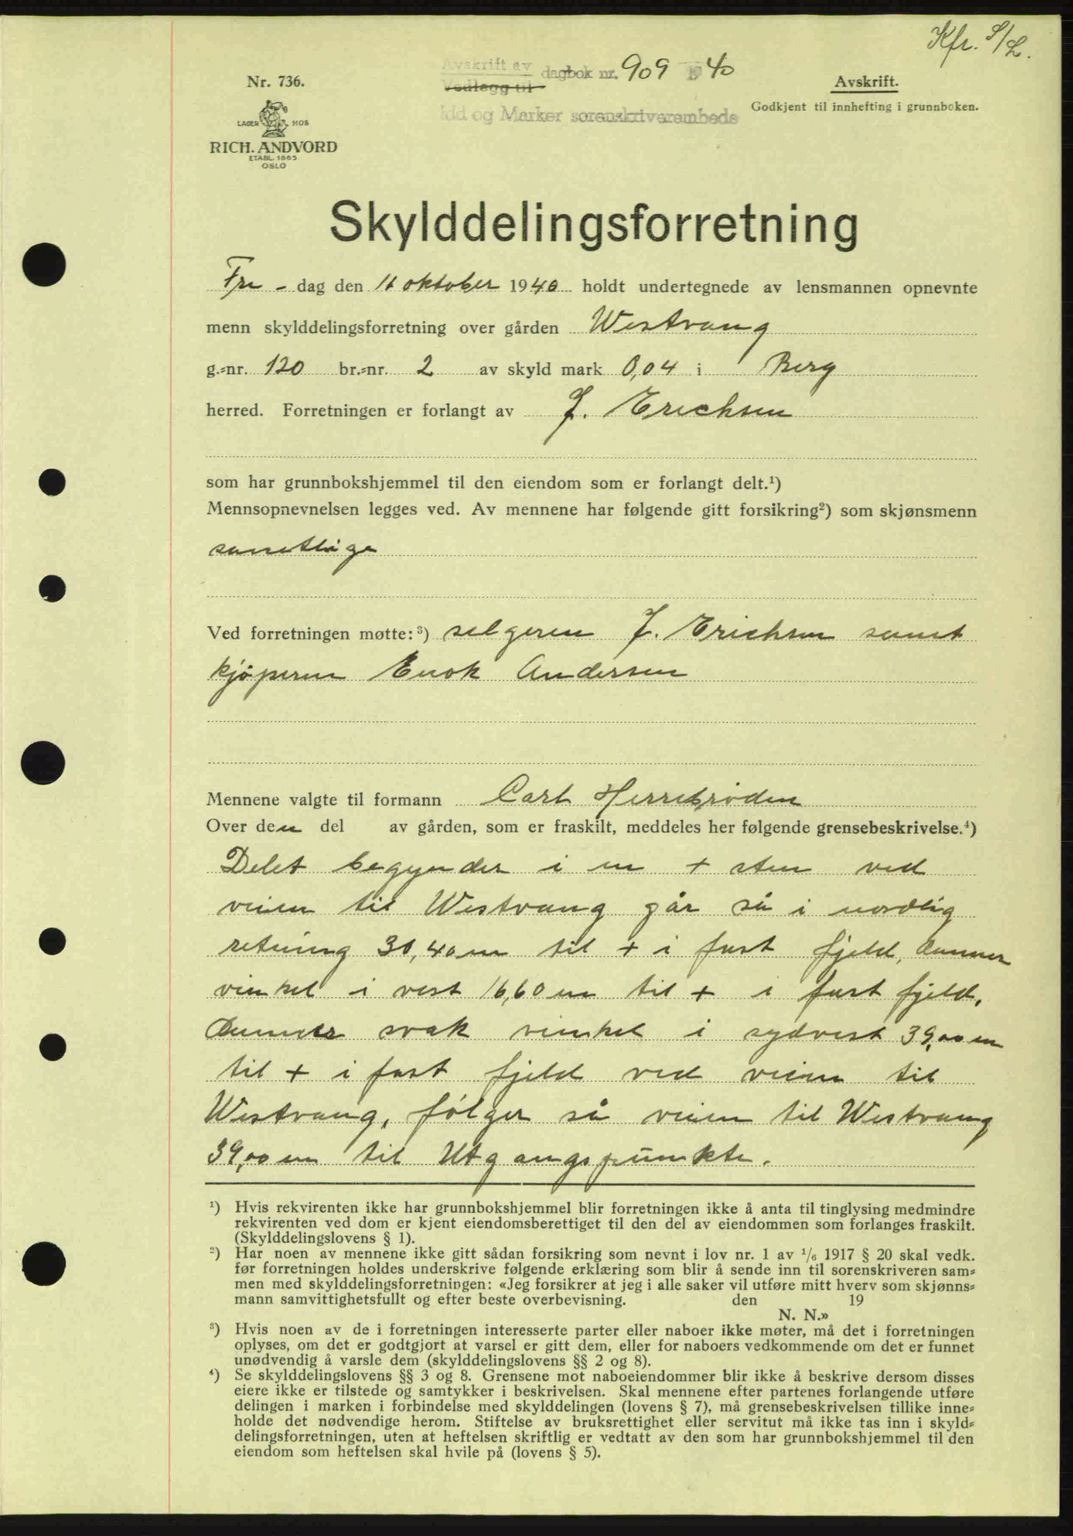 Kfr. S/L.
Avskrift av
Vedlegg til dagbok nr. 909 1940
Idd og Marker sorenskriverembede
Nr. 736.
LAGER HOS
RICH. ANDVORD
ETABL. 1865
OSLO
Avskrift.
Godkjent til innhefting i grunnboken.
Skylddelingsforretning
Fre - dag den 11 oktober 1940 holdt undertegnede av lensmannen opnevnte
menn skylddelingsforretning over gården Westvang
g.-nr. 120 br.-nr. 2 av skyld mark 0,04 i Berg
herred. Forretningen er forlangt av J. Erichsen
som har grunnbokshjemmel til den eiendom som er forlangt delt.¹)
Mennsopnevnelsen legges ved. Av mennene har følgende gitt forsikring²) som skjønsmenn
samtlige
Ved forretningen møtte:³) selgeren J. Erichsen samt
kjøperen Enok Andersen
Mennene valgte til formann Carl Herrebrøden
Over den del av gården, som er fraskilt, meddeles her følgende grensebeskrivelse.⁴)
Delet begynder i en + sten ved
veien til Westvang går så i nordlig
retning 30,40 m til + i fast fjeld, danner
vinkel i vest 16,60 m til + i fast fjeld,
danner svak vinkel i sydvest 39,00 m
til + i fast fjeld ved veien til
Westvang, følger så veien til Westvang
39,00 m til Utgangspunkte.
¹) Hvis rekvirenten ikke har grunnbokshjemmel blir forretningen ikke å anta til tinglysing medmindre
rekvirenten ved dom er kjent eiendomsberettiget til den del av eiendommen som forlanges fraskilt.
(Skylddelingslovens § 1).
²) Har noen av mennene ikke gitt sådan forsikring som nevnt i lov nr. 1 av 1/6 1917 § 20 skal vedk.
før forretningen holdes underskrive følgende erklæring som blir å sende inn til sorenskriveren sam-
men med skylddelingsforretningen: «Jeg forsikrer at jeg i alle saker vil utføre mitt hverv som skjønns-
mann samvittighetsfullt og efter beste overbevisning. den 19
N. N.»
³) Hvis noen av de i forretningen interesserte parter eller naboer ikke møter, må det i forretningen
oplyses, om det er godtgjort at varsel er gitt dem, eller for naboers vedkommende om det er funnet
unødvendig å varsle dem (skylddelingslovens §§ 2 og 8).
⁴) Se skylddelingslovens §§ 3 og 8. Grensene mot naboeiendommer blir ikke å beskrive dersom disses
eiere ikke er tilstede og samtykker i beskrivelsen. Skal mennene efter partenes forlangende utføre
delingen i marken i forbindelse med skylddelingen (lovens § 7), må grensebeskrivelsen tillike inne-
holde det nødvendige herom. Stiftelse av bruksrettighet eller servitut må ikke tas inn i skyld-
delingsforretningen, uten at heftelsen skriftlig er vedtatt av den som har grunnbokshjemmel til den
eiendom som heftelsen skal hvile på (lovens § 5).